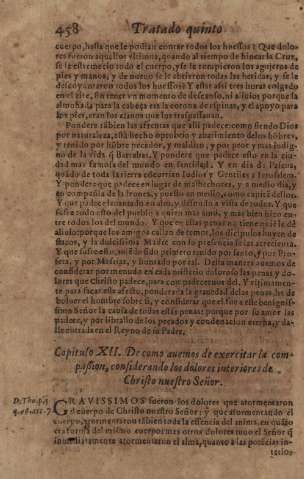 458 Tratado quinto
cuerpo, hasta que le podian contar todos los huessos! Que dolo-
res fueron aquellos vltimos, quando al tiempo de hincar la Cruz,
se le estremeciò todo el cuerpo, y se le rompieron los agujeros de
pies y manos, y de nuevo se le abrieron todas las heridas, y se le
descoyuntaron todos los huessos! Y estar assi tres horas colgado
en el aire, sin tener vn momento de descanso, ni alivio; porque la
almohada para la cabeça era la corona de espinas, y el apoyo para
los pies, eran los clauos que los traspassauan.
Pondere tambien las afrentas que alli padece: como siendo Dios
por naturaleza, està hecho oprobrio y abatimiento de los hombres,
y tenido por hõbre pecador, y maldito, y por peor y mas indig-
no de la vida q̃ Barrabas. Y pondere que padece esto en la ciudad
mas famosa del mundo en santidad. Y en dia de Pascua,
quãdo de toda la tierra Iudios y Gentiles a Ierusalem.
Y pondere que padece en lugar de malhechores, y a medio dia, y
en compañia de ladrones, y puesto en medio, como capitã dellos.
Y que padece leuantado en alto, y desnudo a vista de todos. Y que
sufre todo esto del pueblo a quien mas amò, y mas bien hizo en-
tre todos los del mundo. Y que en estas penas no tiene quiẽ le dè
aliuio: porque los amigos callan de temor, los discipulos huyen de
flacos, y la dulcissima Madre con su presencia se las acrecienta.
Y que sufre esto, mereciendo
y por Messias, y honrado por tal. Desta manera auemos de
considerar por menudo en cada misterio doloroso las penas y do-
lores que Christo padece, para con padecernos del. Y vltimamen-
te para sacar este afecto, ponderar la grandeza de las penas, ha de
boluer el hombre sobre si, y considerar que el fue a este benignis-
simo Señor la causa de todos sus trabajos: porque por amor las
padece, y por librarlo de los pecados y condenacion eterna, y dar-
le entrada en el Reyno de su Padre.
Capitulo XII. De como auemos de exercitar la com-
passion, considerando los dolores interiores de
Christo nuestro Señor.
D. Tho. 3. p.
GRAVISSIMOS fueron los dolores que atormentaron
el cuerpo de Christo nuestro Señor: y que atormentando el
cuerpo, atormentaron tãbien toda la essencia del anima, en quãto
era forma del mismo cuerpo: mas otros dolores tuuo el Señor q̃
inmediatamente atormentaron el alma, quanto a las potẽcias in-
terio-